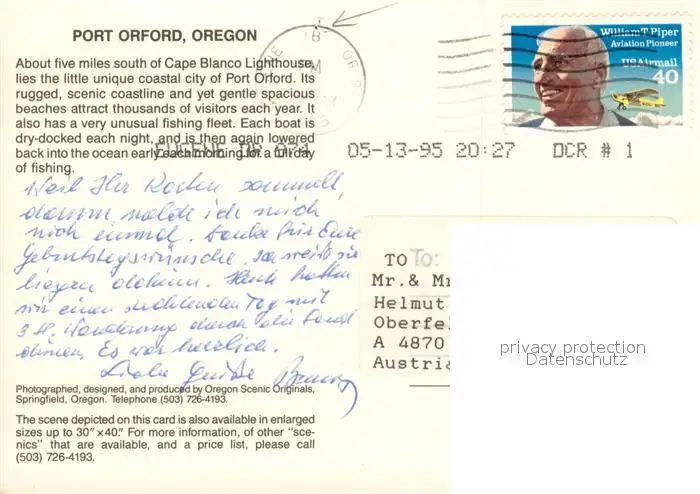 PORT ORFORD, OREGON
About five miles south of Cape Blanco Lighthouse,
lies the little unique coastal city of Port Orford. Its
rugged, scenic coastline and yet gentle spacious
beaches attract thousands of visitors each year. It
also has a very unusual fishing fleet. Each boat is
dry-docked each night, and is then again lowered
back into the ocean early each morning for a full day
of fishing.
William T. Piper
Aviation Pioneer
USAirmail
40
EUGENE OR 05-13-95 20:27 DCR # 1
Weil Ihr Karten sammelt,
darum melde ich mich
noch einmal. Danke für Eure
Geburtstagswünsche, sie
liegen daheim. Heute hatten
wir einen strahlenden Tag mit
3 St. Wanderung durch die Sand
dünen. Es war herrlich.
Liebe Grüße
TO To:
Mr.& Mr
Helmut
Oberfel
A 4870
Austria
privacy protection
Datenschutz
Photographed, designed, and produced by Oregon Scenic Originals,
Springfield, Oregon. Telephone (503) 726-4193.
The scene depicted on this card is also available in enlarged
sizes up to 30" × 40." For more information, of other "sce-
nics" that are available, and a price list, please call
(503) 726-4193.